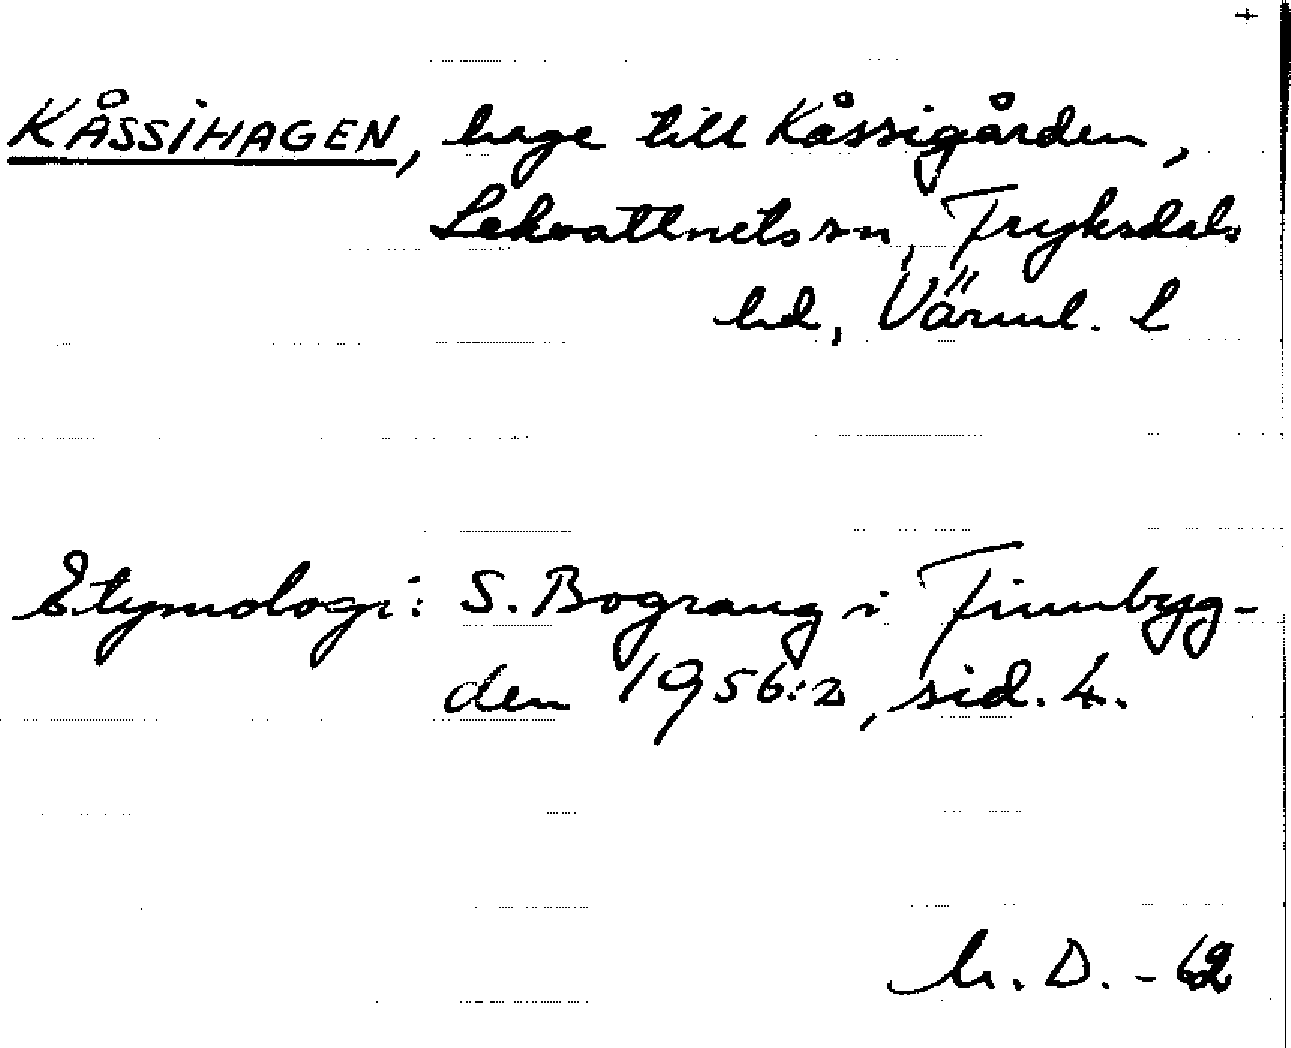 +
KÅSSIHAGEN, hage till Kåssigården,
Lekvattnets sn, Fryksdals
hd, Värml. l
Etymologi: S. Bograng i Finnbyg-
den 1956:2, sid. 4.
h. D. - 62